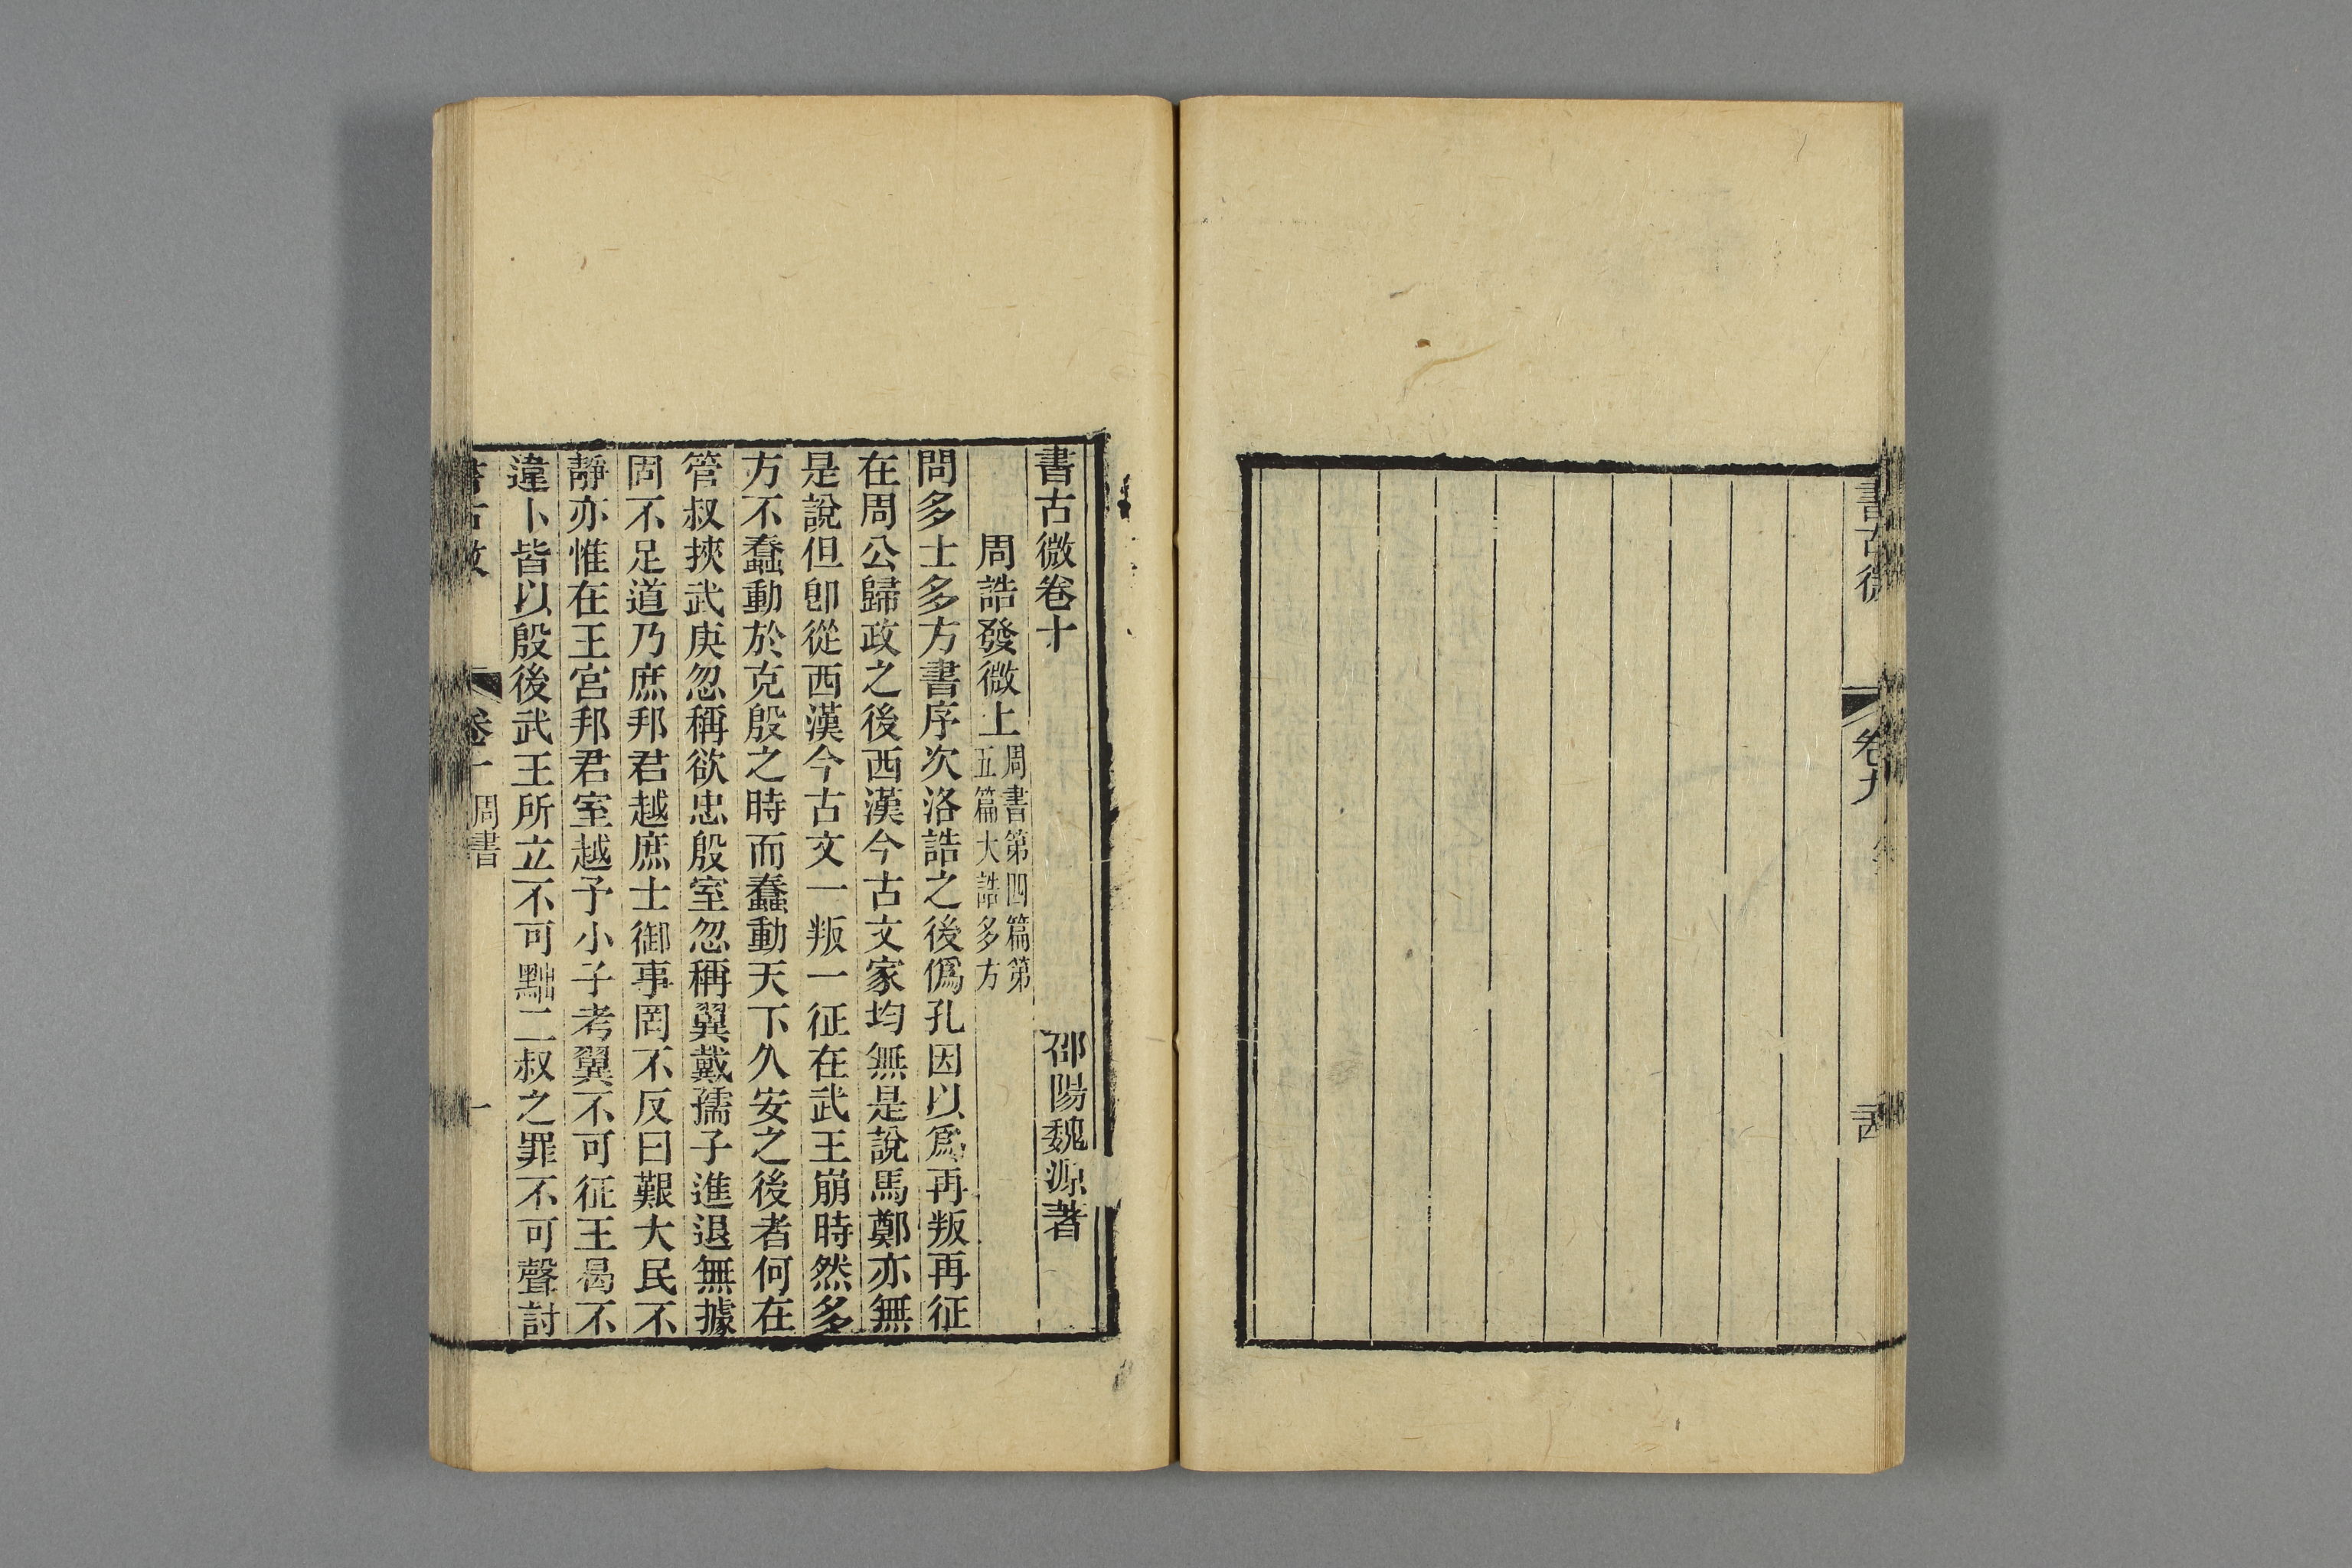 書古微
卷九
書古微卷十
邵陽魏源著
周誥發微上
周書第四篇第
五篇大誥多方
問多士多方書序次洛誥之後僞孔因以爲再叛再征
在周公歸政之後西漢今古文家均無是說馬鄭亦無
是說但卽從西漢今古文一叛一征在武王崩時然多
方不蠢動於克殷之時而蠢動天下久安之後者何在
管叔挾武庚忽稱欲忠殷室忽稱翼戴孺子進退無據
固不足道乃庶邦君越庶士御事罔不反曰艱大民不
靜亦惟在王宮邦君室越予小子考翼不可征王曷不
違卜皆以殷後武王所立不可黜二叔之罪不可聲討
書古微
卷十
周書
一